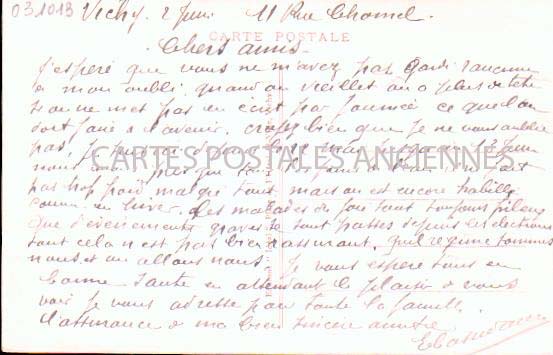 03.1013
Vichy 2 Juin 11 Rue Chomel.
CARTE POSTALE
Chers amis
J'espère que vous ne m'avez pas gardé rancune
de mon oubli quand on vieillit on a plus de tête
si on ne met pas en écrit par journée ce que l'on
doit faire à l'avenir, croyez bien que je ne vous oublie
pas
CARTES POSTALES ANCIENNES
pas trop froid malgré tout mais on est encore habillé
comme en hiver. Les malades de foie sont toujours
que d'événements graves se sont passés depuis les élections
tout cela n'est pas bien rassurant, quel régime sommes
nous et où allons nous. Je vous espère tous en
bonne santé en attendant le plaisir de vous
voir je vous adresse pour toute la famille
l'assurance de ma bien sincère amitié